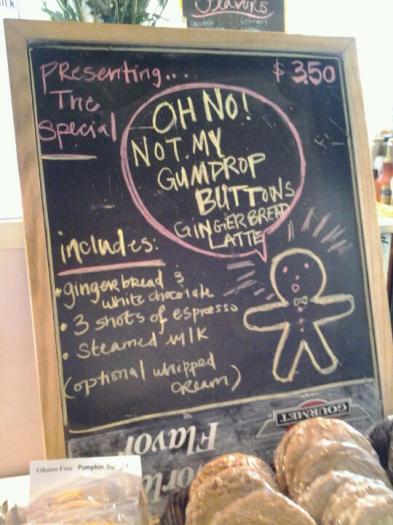 Flavors
Presenting....
The
Special
$3.50
OH NO!
NOT MY
GUMDROP
BUTTONS
GINGERBREAD
LATTE
includes:
• gingerbread &
white chocolate
• 3 shots of espresso
• steamed milk
(optional whipped
cream)
GOURMET
Flavor
Gluten Free Pumpkin